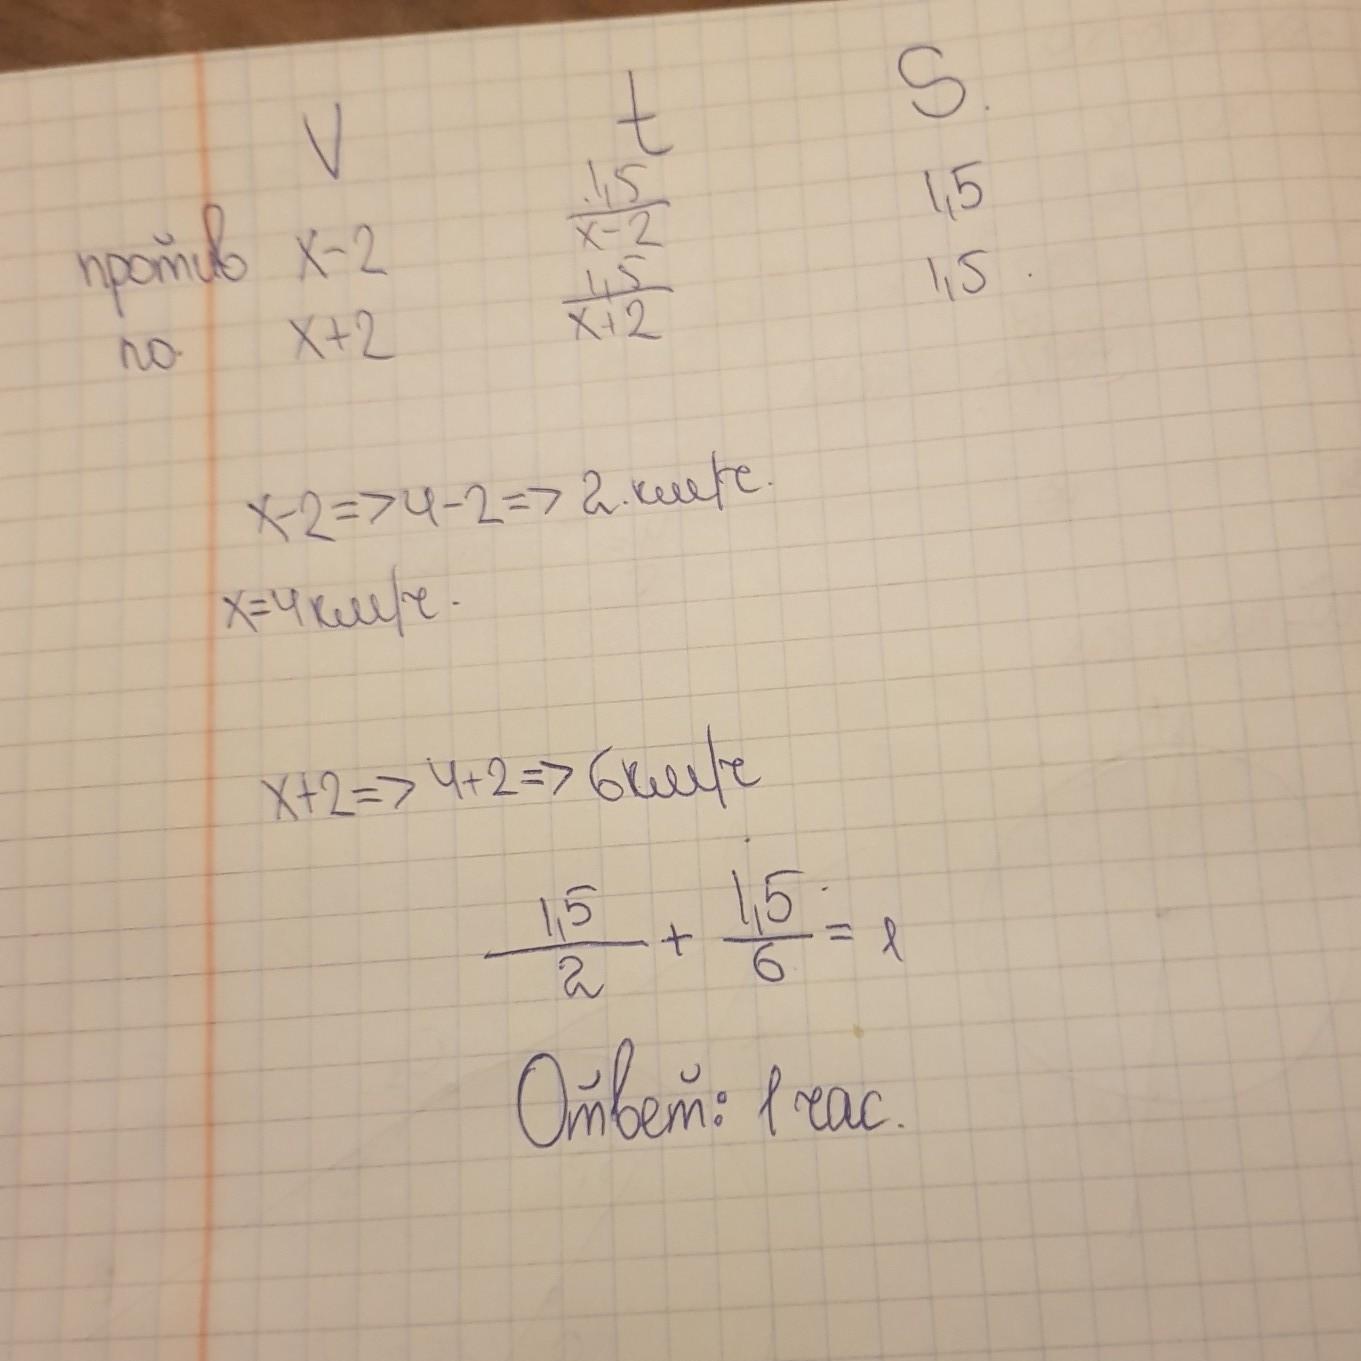 V t S.
против x-2 1,5/x-2 1,5
по x+2 1,5/x+2 1,5
x-2=>4-2=>2 км/ч.
x=4км/ч.
x+2=>4+2=>6км/ч
1,5/2 + 1,5/6 = 1
Ответ: 1 час.